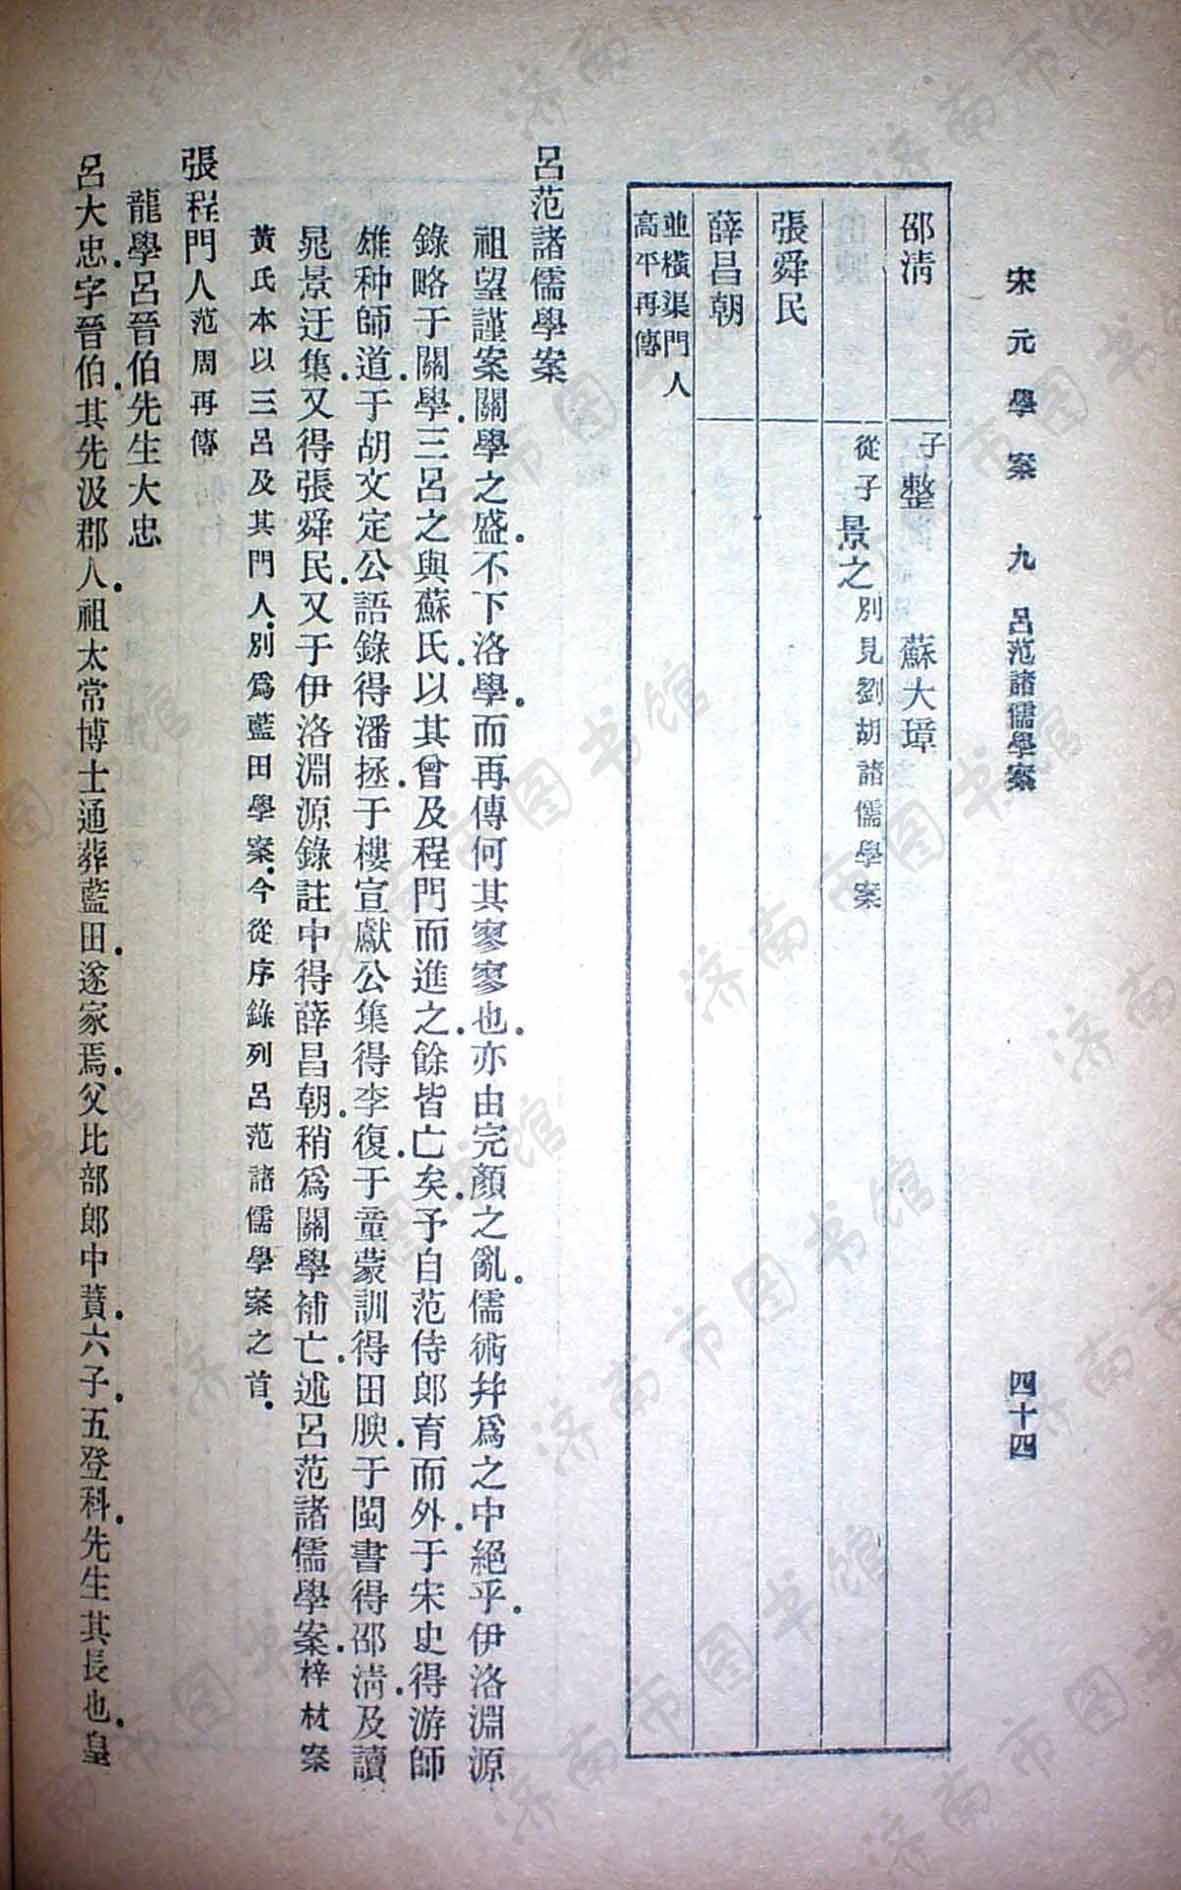 宋元學案 九 呂范諸儒學案 四十四
邵清 子整 蘇大璋
從子景之別見劉胡諸儒學案
張舜民
薛昌朝
並橫渠門人
高平再傳
呂范諸儒學案
祖望謹案關學之盛。不下洛學。而再傳何其寥寥也。亦由完顏之亂。儒術幷爲之中絕乎。伊洛淵源
錄略于關學。三呂之與蘇氏。以其曾及程門而進之。餘皆亡矣。予自范侍郎育而外。于宋史得游師
雄种師道。于胡文定公語錄得潘拯。于樓宣獻公集得李復。于童蒙訓得田腴。于閩書得邵清。及讀
晁景迂集。又得張舜民。又于伊洛淵源錄註中得薛昌朝。稍爲關學補亡。述呂范諸儒學案。梓材案
黃氏本以三呂及其門人。別爲藍田學案。今從序錄列呂范諸儒學案之首。
張程門人范周再傳
龍學呂晉伯先生大忠
呂大忠。字晉伯。其先汲郡人。祖太常博士通葬藍田。遂家焉。父比部郎中蕡。六子。五登科。先生其長也。皇